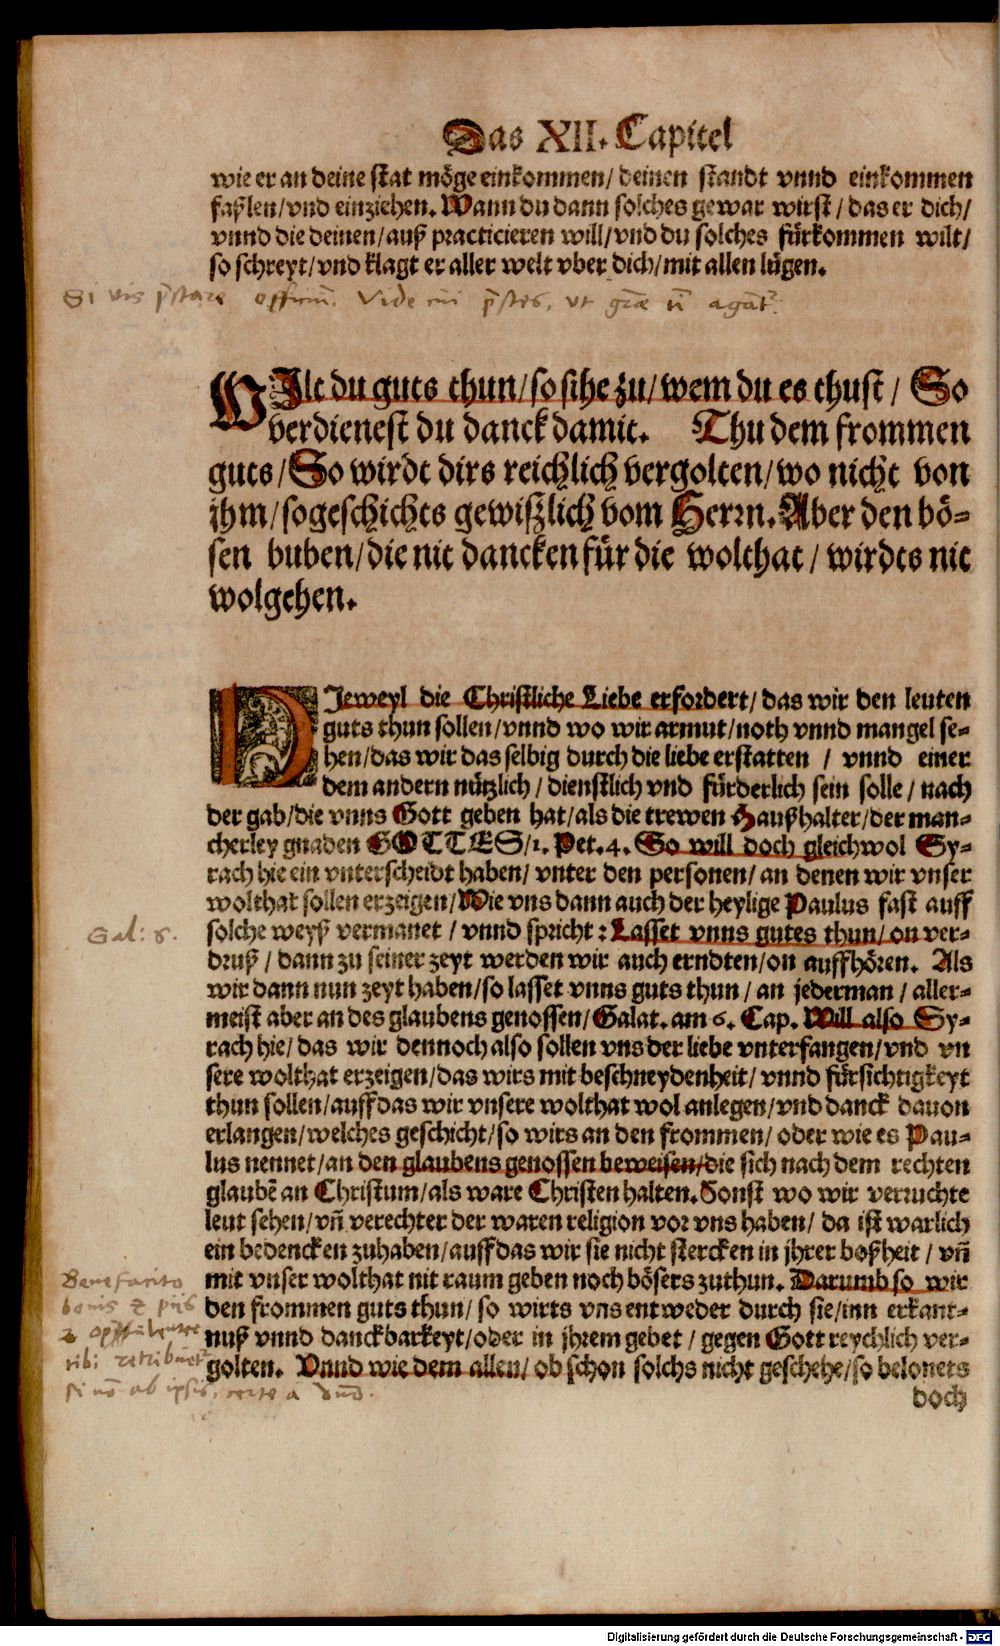 Das XII. Capitel
wie er an deine stat möge einkommen/ deinen standt vnnd einkommen
faßlen/ vnd einziehen. Wann du dann solches gewar wirst/ das er dich/
vnnd die deinen/ auß practicieren will/ vnd du solches fürkommen wilt/
so schreyt/ vnd klagt er aller welt vber dich/ mit allen lügen.
Si vis p̄stare officiū. Vide cui p̄stes, ut
WIlt du guts thun/ so sihe zu/ wem du es thust/ So
verdienest du danck damit. Thu dem frommen
guts/ So wirdt dirs reichlich vergolten/ wo nicht von
jhm/ so geschichts gewißlich vom Herrn. Aber den bö-
sen buben/ die nit dancken für die wolthat/ wirdts nit
wolgehen.
DIeweyl die Christliche Liebe erfordert/ das wir den leuten
guts thun sollen/ vnnd wo wir armut/ noth vnnd mangel se-
hen/ das wir das selbig durch die liebe erstatten / vnnd einer
dem andern nützlich/ dienstlich vnd fürderlich sein solle/ nach
der gab/ die vnns Gott geben hat/ als die trewen Haußhalter/ der man-
cherley gnaden GOTTES/ 1. Pet. 4. So will doch gleichwol Sy-
rach hie ein vnterscheidt haben/ vnter den personen/ an denen wir vnser
wolthat sollen erzeigen/ Wie vns dann auch der heylige Paulus fast auff
Gal: 6.
solche weyß vermanet / vnnd spricht: Lasset vnns gutes thun/ on ver-
druß / dann zu seiner zeyt werden wir auch erndten/ on auffhören. Als
wir dann nun zeyt haben/ so lasset vnns guts thun/ an jederman / aller-
meist aber an des glaubens genossen/ Galat. am 6. Cap. Will also Sy-
rach hie/ das wir dennoch also sollen vns der liebe vnterfangen/ vnd vn
sere wolthat erzeigen/ das wirs mit bescheydenheit/ vnnd fürsichtigkeyt
thun sollen/ auff das wir vnsere wolthat wol anlegen/ vnd danck dauon
erlangen/ welches geschicht/ so wirs an den frommen/ oder wie es Pau-
lus nennet/ an den glaubens genossen beweisen/ die sich nach dem rechten
glaubē an Christum/ als ware Christen halten. Sonst wo wir verruchte
leut sehen/ vñ verechter der waren religion vor vns haben/ da ist warlich
ein bedencken zuhaben/ auff das wir sie nicht stercken in jhrer boßheit / vñ
mit vnser wolthat nit raum geben noch bösers zuthun. Darumb so wir
den frommen guts thun/ so wirts vns entweder durch sie/ inn erkant-
nuß vnnd danckbarkeyt/ oder in jhrem gebet / gegen Gott reychlich ver-
golten. Vnnd wie dem allen/ ob schon solchs nicht geschehe/ so belonets
Benefacito
bonis & piis
tibi
si nō ab ipsis, certe a dn̄o.
doch
Digitalisierung gefördert durch die Deutsche Forschungsgemeinschaft - DFG